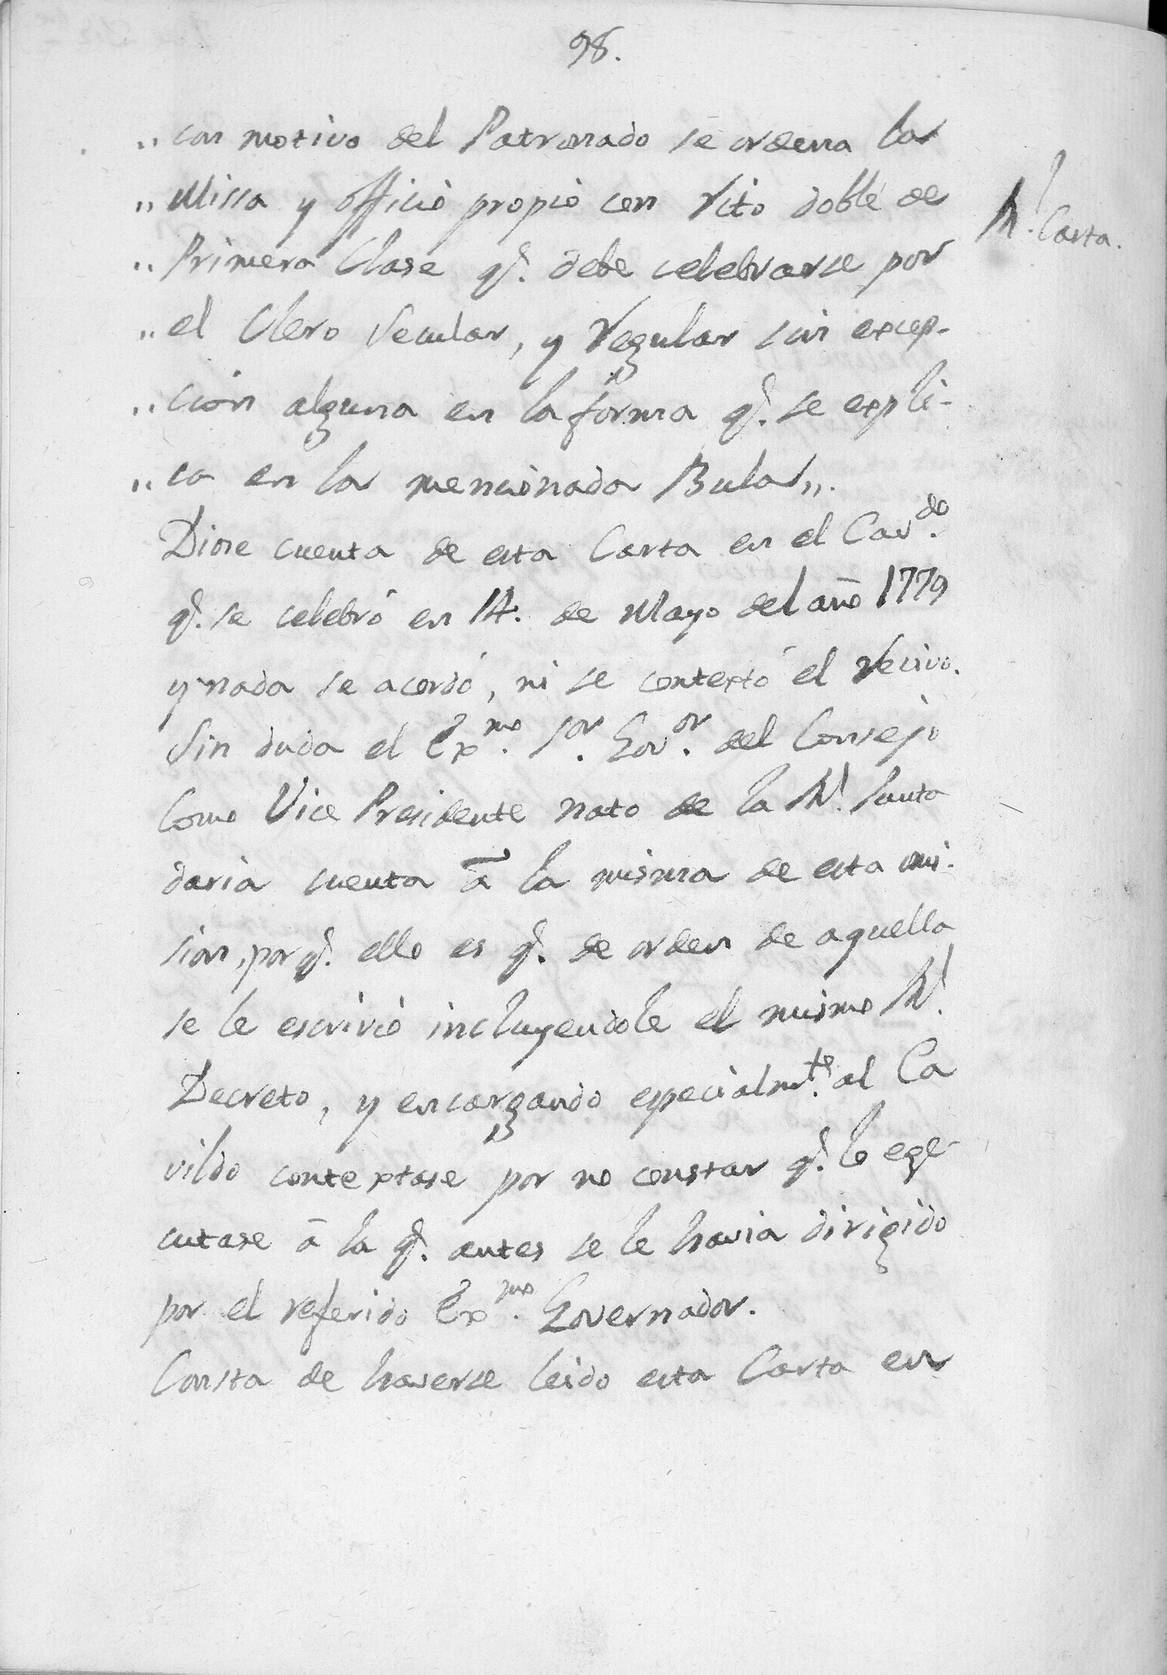 98.
„con motivo del Patronado se ordena la
„Missa y officio propio con rito doble de
„Primera Clase q.e debe celebrarse por
„el Clero Secular, y regular sin excep-
„cion alguna en la forma q.e se expli-
„ca en la mencionada Bula„.
Diose cuenta de esta Carta en el Cav.do
q.e se celebró en 14. de Mayo del año 1779
y nada se acordó, ni se contextó el recivo.
Sin duda el Ex.mo S.or Gov.or del Consejo
como Vice Presidente nato de la R.l Junta
daria cuenta à la misma de esta omi-
sion, porq.e ello es q.e de orden de aquella
se le escrivió incluyendole el mismo R.l
Decreto, y encargando especialm.te al Ca
vildo contextase por no constar q.e lo ege-
cutase à la q.e antes se le havia dirigido
por el referido Ex.mo Governador.
Consta de haverse leido esta Carta en
R.l Carta.